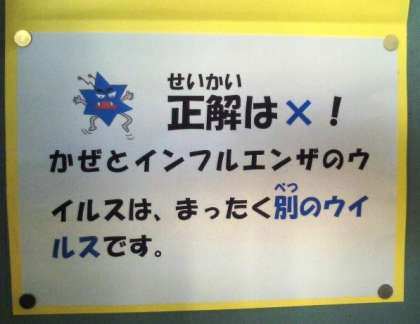 せいかい
正解は×！
かぜとインフルエンザのウ
べつ
イルスは、まったく別のウイ
ルスです。